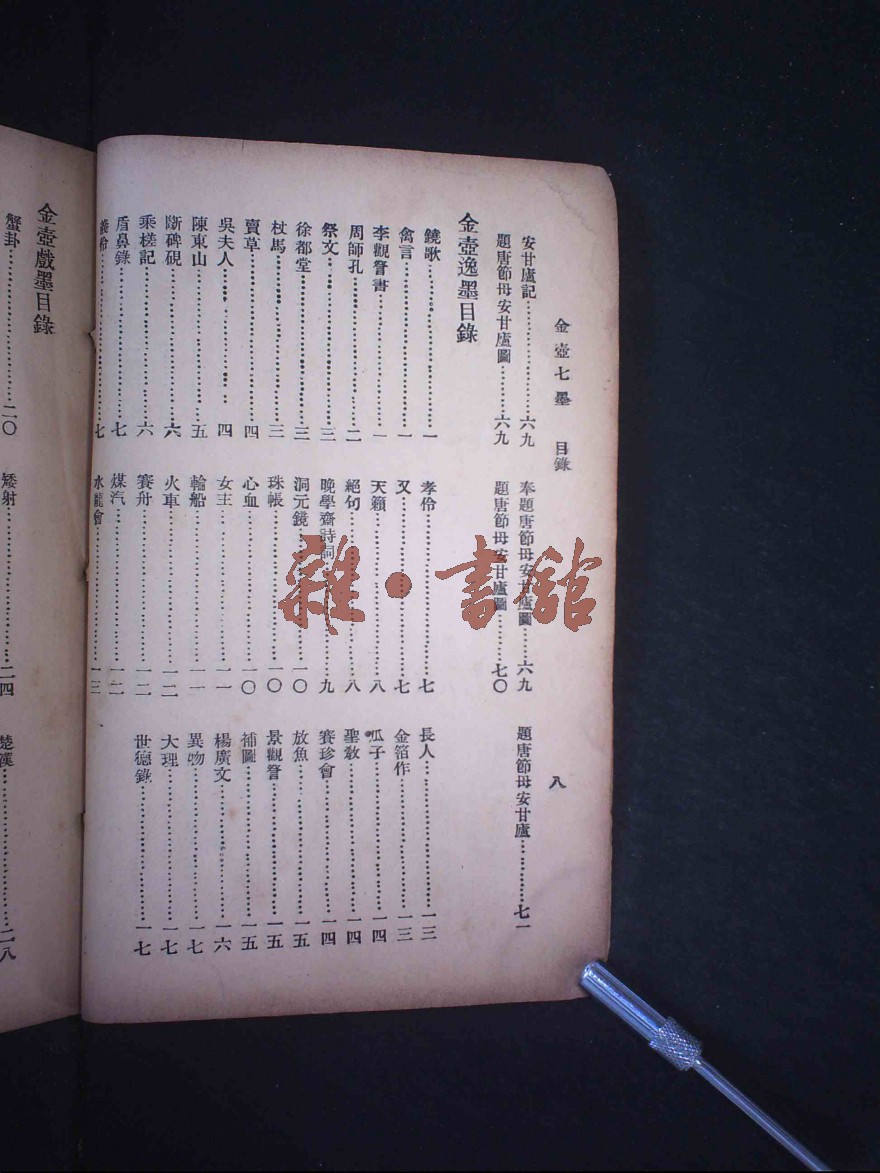 金壺七墨 目錄 八
安甘廬記…………六九
題唐節母安甘廬圖……六九
奉題唐節母安甘廬圖……六九
題唐節母安甘廬圖……七〇
題唐節母安甘廬…………七一
金壺逸墨目錄
鐃歌…………一
禽言…………一
李觀眘書…………一
周師孔…………二
祭文…………三
徐都堂…………三
杖馬…………三
賣草…………四
吳夫人…………四
陳東山…………五
斷碑硯…………六
乘槎記…………六
盾鼻錄…………七
義伶…………七
孝伶…………七
又…………七
天籟…………八
絕句…………八
晚學齋詩詞…………九
洞元鏡…………一〇
珠帳…………一〇
心血…………一〇
女王…………一一
輪船…………一一
火車…………一二
賽舟…………一二
煤汽…………一二
水龍會…………一三
長人…………一三
金箔作…………一三
瓜子…………一四
聖教…………一四
賽珍會…………一四
放魚…………一五
景觀眘…………一五
補圖…………一五
楊廣文…………一六
異物…………一七
大理…………一七
世德錄…………一七
金壺戲墨目錄
蟹卦…………二〇
矮射…………二四
楚漢…………二八
雜·書館